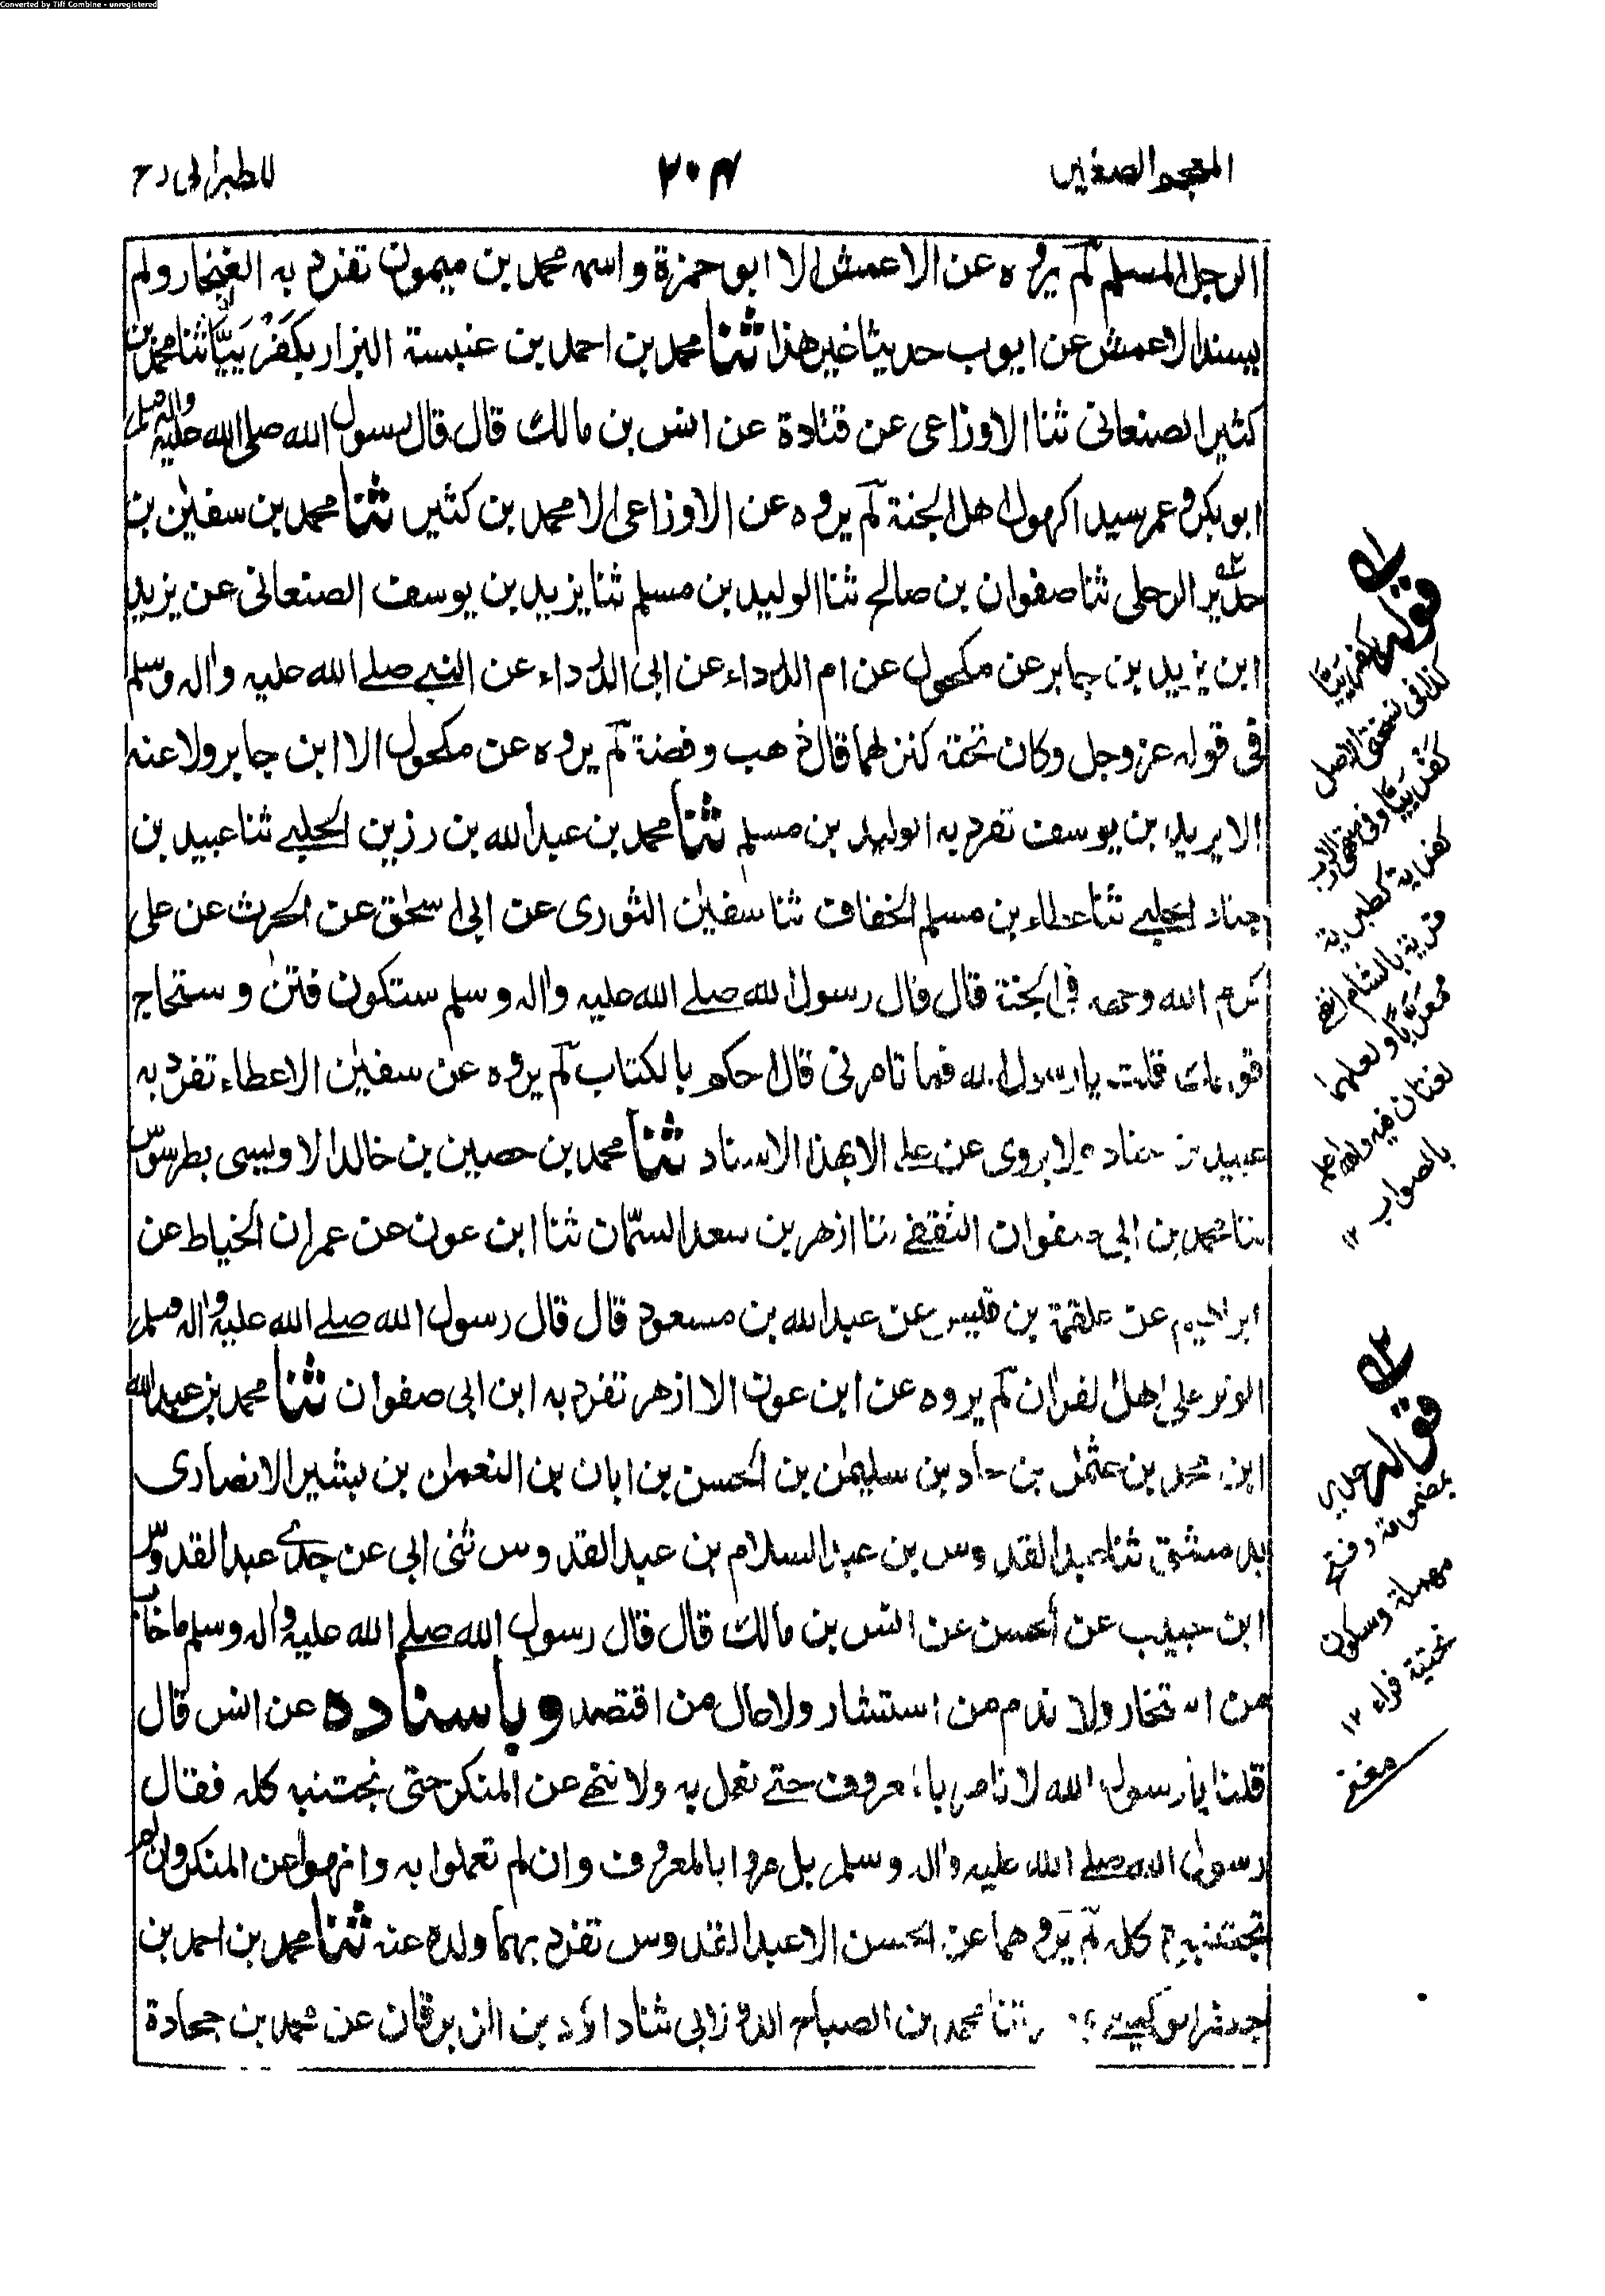 Converted by Tiff Combine - unregistered
المعجم الصغير
٢٠٤
للطبراني رح
الرجل المسلم لم يروه عن الاعمش الا ابو حمزة واسمه محمد بن ميمون تفرد به الغنجار ولم
يسند الاعمش عن ايوب حديثا غير هذا ثنا محمد بن احمد بن عنبسة البزار بكفر بيّا ثنا محمد بن
كثير الصنعانى ثنا الاوزاعى عن قتادة عن انس بن مالك قال قال رسول الله صلى الله عليه واله وسلم
ابو بكر وعمر سيدا كهول اهل الجنة لم يروه عن الاوزاعى الا محمد بن كثير ثنا محمد بن سفين بن
حدير الرحلى ثنا صفوان بن صالح ثنا الوليد بن مسلم ثنا يزيد بن يوسف الصنعانى عن يزيد
ابن يزيد بن جابر عن مكحول عن ام الدرداء عن ابى الدرداء عن النبي صلے الله عليه واله وسلم
فى قوله عز وجل وكان تحته كنز لهما قال ذهب وفضة لم يروه عن مكحول الا ابن جابر ولا عنه
الا يزيد بن يوسف تفرد به الوليد بن مسلم ثنا محمد بن عبد الله بن رزين الحلبے ثنا عبيد بن
جناد الحلبے ثنا عطاء بن مسلم الخفاف ثنا سفين الثورى عن ابى اسحق عن الحرث عن على
كرم الله وجهه فى الجنة قال قال رسول الله صلے الله عليه واله وسلم ستكون فتن وستحاج
قومك قلت يا رسول الله فما تامرنى قال احكم بالكتاب لم يروه عن سفين الا عطاء تفرد به
عبيد بن جناد ولا يروى عن على الا بهذا الاسناد ثنا محمد بن حصين بن خالد الاويسى بطرسوس
ثنا محمد بن ابى صفوان الثقفے ثنا ازهر بن سعد السمّان ثنا ابن عون عن عمران الخياط عن
ابراهيم عن علقمة بن قيس عن عبد الله بن مسعود قال قال رسول الله صلے الله عليه واله وسلم
الوتر على اهل القران لم يروه عن ابن عون الا ازهر تفرد به ابن ابى صفوان ثنا محمد بن عبد الله
ابن محمد بن عثمن بن حماد بن سليمن بن الحسن بن ابان بن النعمن بن بشير الانصارى
بدمشق ثنا عبد القدوس بن عبد السلام بن عبد القدوس ثنى ابى عن جدے عبد القدوس
ابن حبيب عن الحسن عن انس بن مالك قال قال رسول الله صلے الله عليه واله وسلم ما خاب
من استخار ولا ندم من استشار ولا عال من اقتصد وباسناده عن انس قال
قلنا يا رسول الله لا نامر بالمعروف حتے نعمل به ولا ننهى عن المنكر حتى نجتنبه كله فقال
رسول الله صلے الله عليه واله وسلم بل مروا بالمعروف وان لم تعملوا به وانهوا عن المنكر وان لم
تجتنبوه كله لم يروهما عن الحسن الا عبد القدوس تفرد بهما ولده عنه ثنا محمد بن احمد بن
ثنا محمد بن الصباح الجرجرائى ثنا داؤد بن الزبرقان عن محمد بن جحادة
قوله بكفر بيّا
كذا فى نسختى الاصل
كفر بيّا وفى
كفربية كطبرية
قرية بالشام انتهى
ولعلهما
لغتان فيه والله اعلم
بالصواب ١٢
قوله حدير
بمضمومة وفتح
مهملة وسكون
تحتية فراء ١٢
مغنے